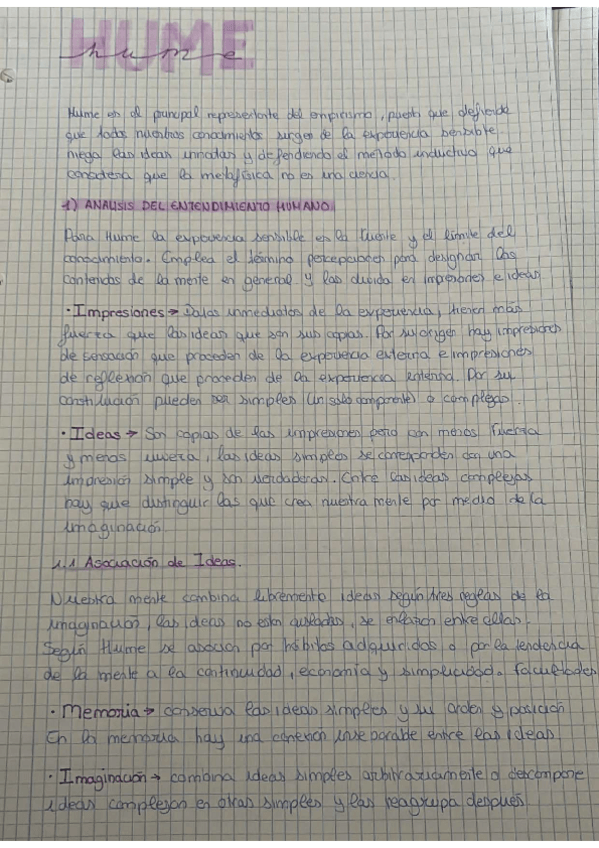 HUME
hume
Hume es el principal representante del empirismo, puesto que defiende
que todos nuestros conocimientos surgen de la experiencia sensible
niega las ideas innatas y defendiendo el método inductivo que
considera que la metafísica no es una ciencia.
1) ANALISIS DEL ENTENDIMIENTO HUMANO
Para Hume la experiencia sensible es la fuente y el límite del
conocimiento. Emplea el término percepciones para designar los
contenidos de la mente en general y las divide en impresiones e ideas
· Impresiones → Datos inmediatos de la experiencia, tienen más
fuerza que las ideas que son sus copias. Por su origen hay impresiones
de sensación que proceden de la experiencia externa e impresiones
de reflexión que proceden de la experiencia interna. Por su
constitución pueden ser simples (un solo componente) o complejas.
· Ideas → Son copias de las impresiones pero con menos fuerza
y menos viveza, las ideas simples se corresponden con una
impresión simple y son verdaderas. Entre las ideas complejas
hay que distinguir las que crea nuestra mente por medio de la
imaginación.
1.1 Asociación de Ideas.
Nuestra mente combina libremente ideas según tres reglas de la
imaginación, las ideas no están aisladas, se enlazan entre ellas.
Según Hume se asocian por hábitos adquiridos o por la tendencia
de la mente a la continuidad, economía y simplicidad. facultades
· Memoria → conserva las ideas simples y su orden y posición
En la memoria hay una conexión inseparable entre las ideas
· Imaginación → combina ideas simples arbitrariamente o descompone
ideas complejas en otras simples y las reagrupa después.